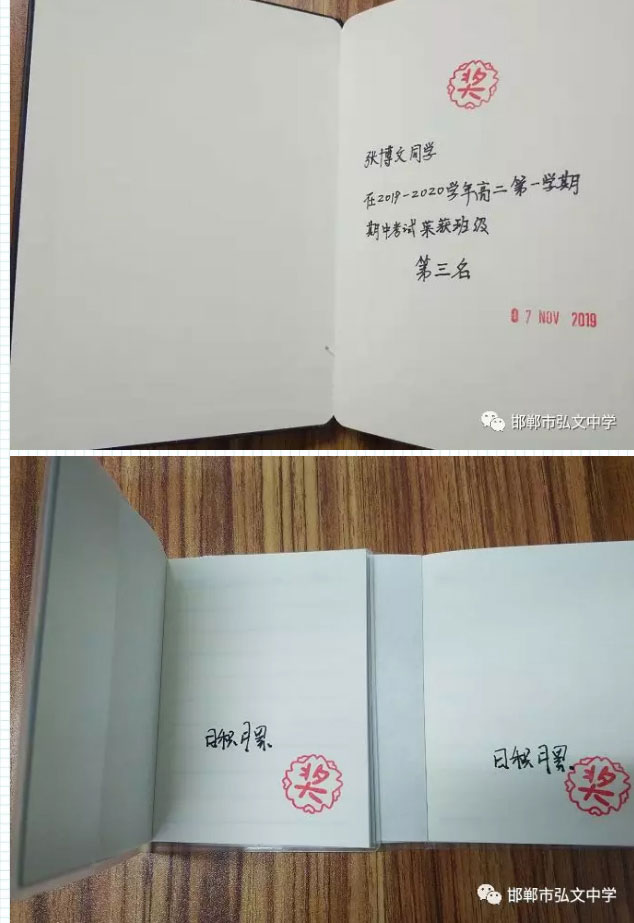 奖
张博文同学
在2019-2020学年高二第一学期
期中考试荣获班级
第三名
07 NOV 2019
邯郸市弘文中学
日积月累
奖
日积月累
奖
邯郸市弘文中学